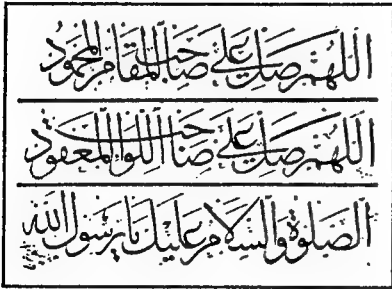 اللهم صل على صاحب المقام المحمود
اللهم صل على صاحب اللوا المعقود
الصلوة والسلام عليك يا رسول الله